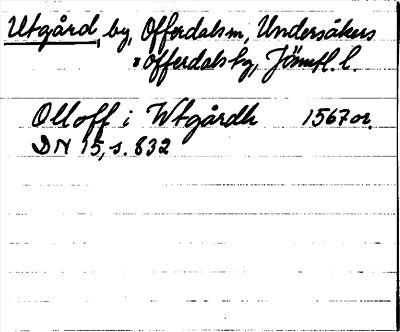 Utgård, by, Offerdals sn, Undersåkers
o offerdals tg, Jämtl. l.
Olloff i Wtgårdh 1567 or.
DN 15, s. 832